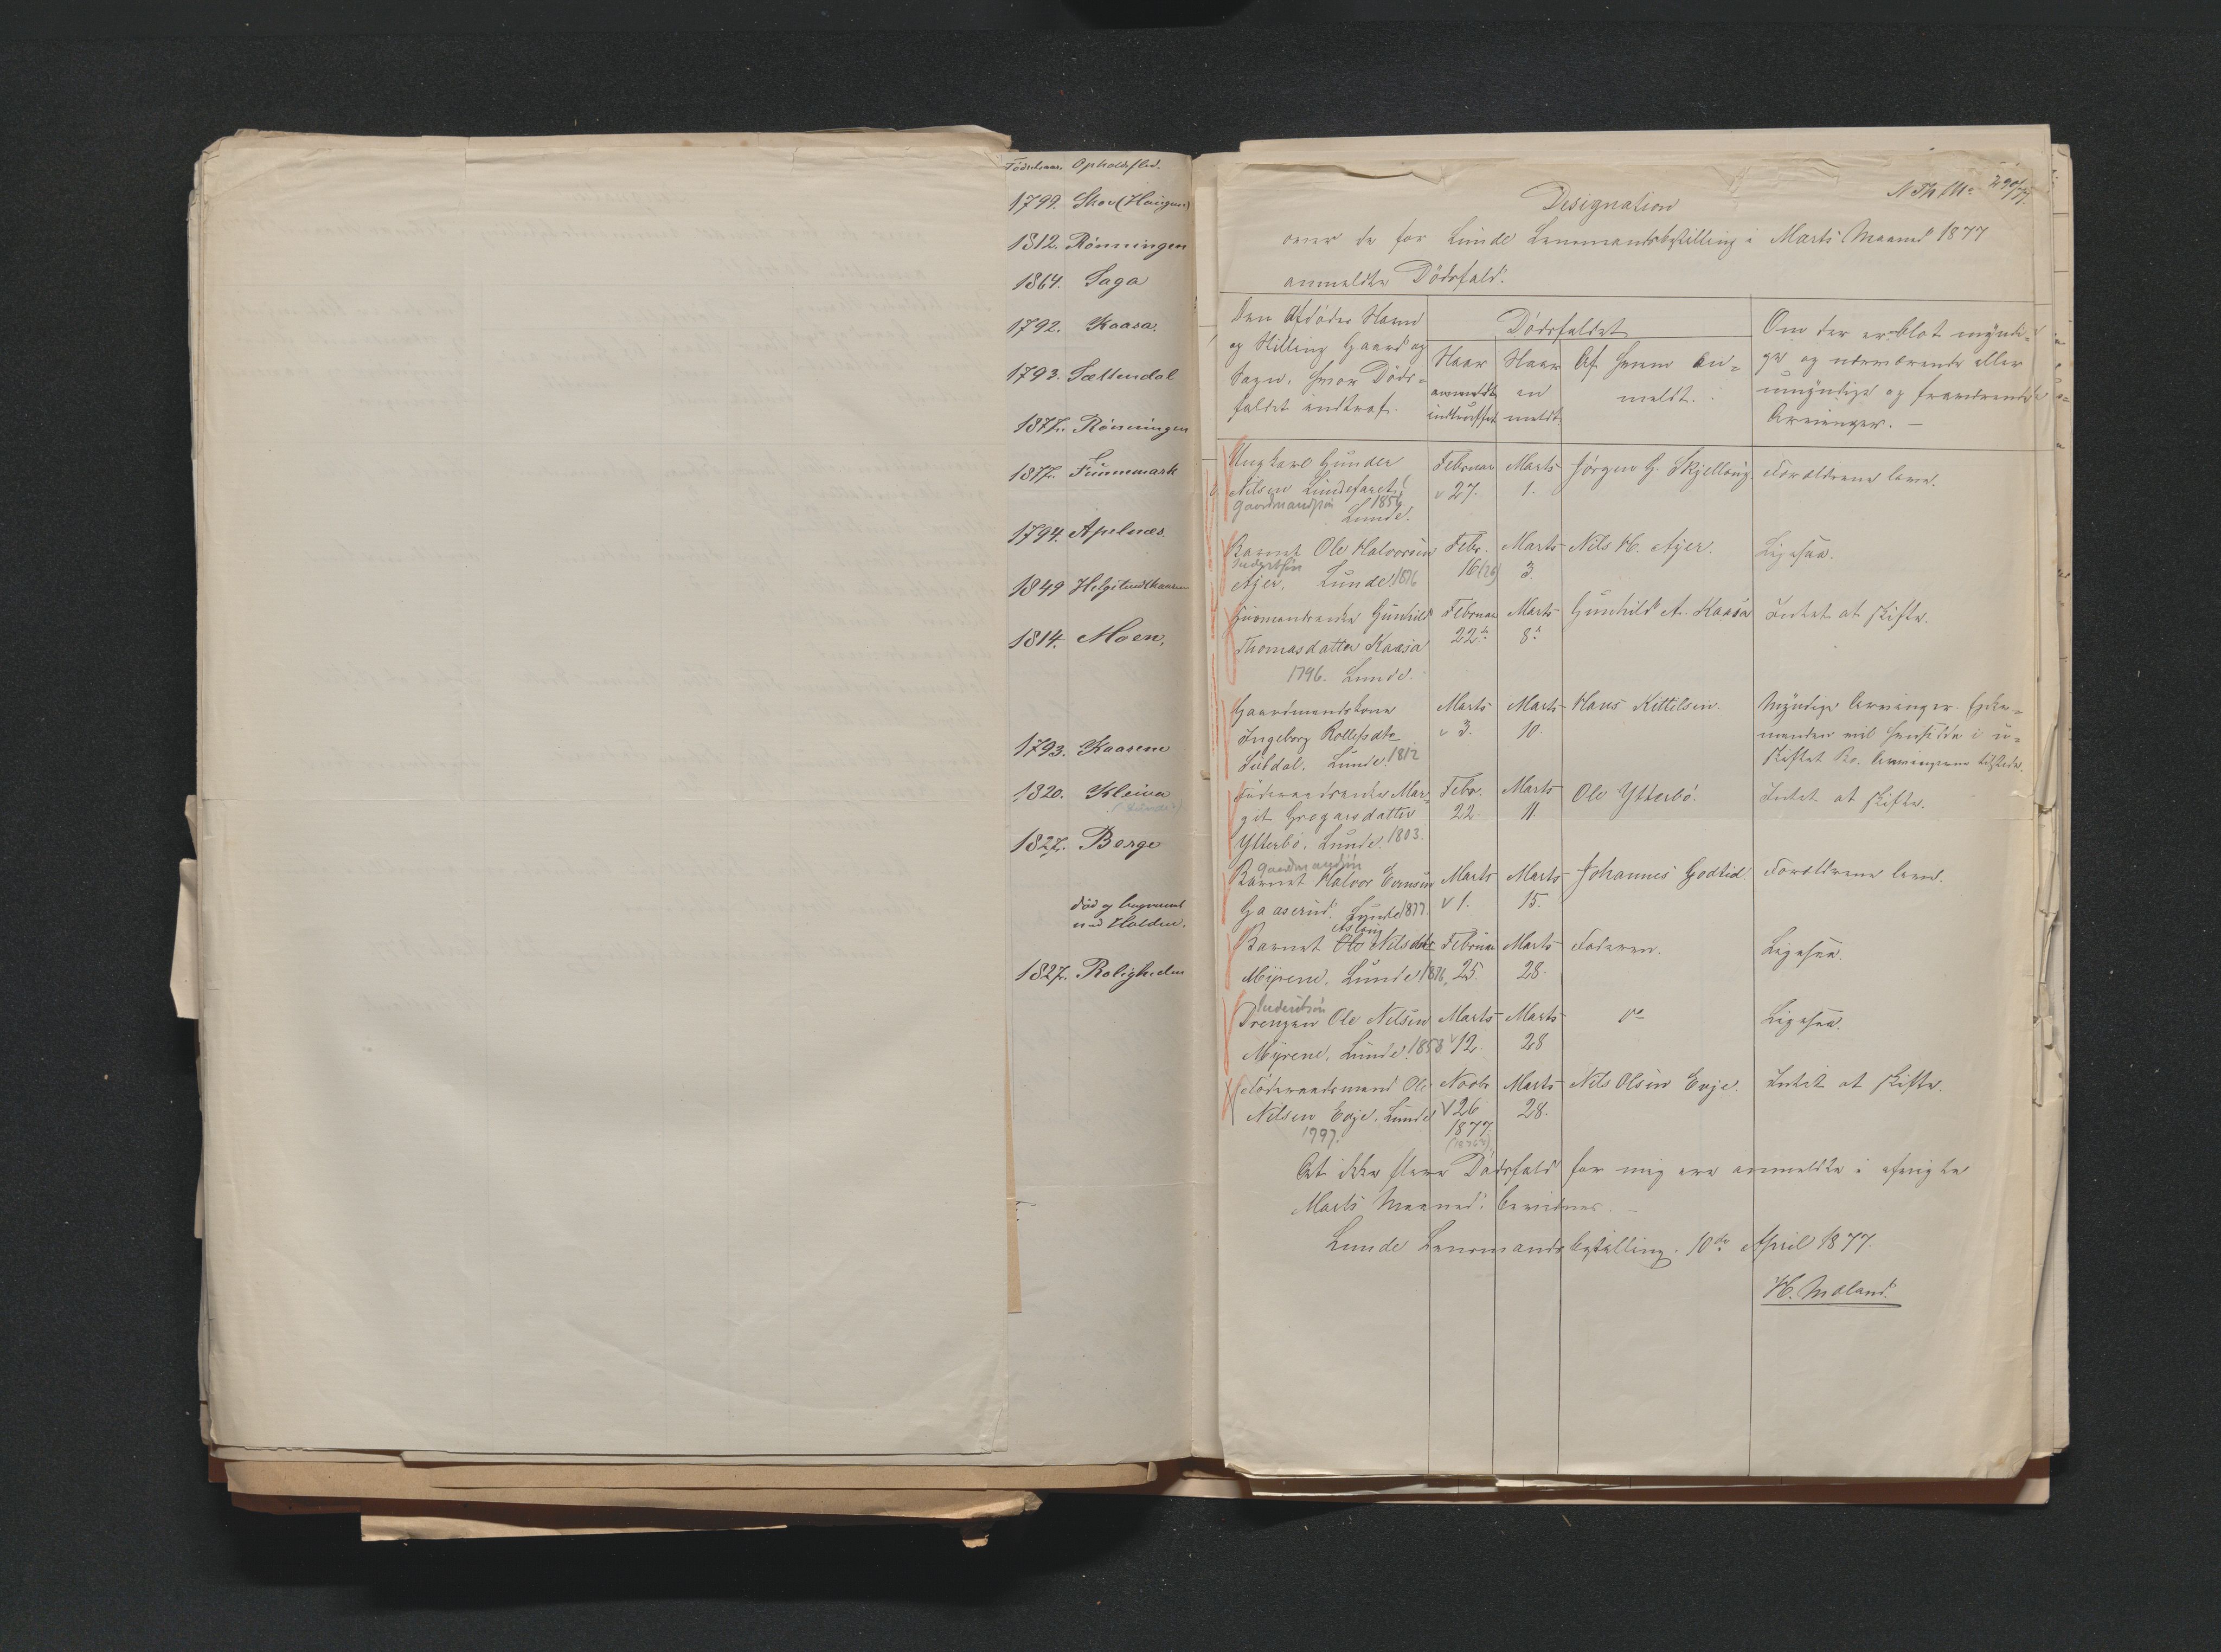 Fødselsaar. Opholdssted.
1799. Skov (Haugen)
1812. Rönningen
1864. Saga
1792. Kaasa.
1793. Sættendal
1877. Rönningen
1877. Finnemark
1794. Apelnæs.
1849 Helgetvedthaugen
1814. Moen,
1793. Kaasene
1820. Kleiva
(Lunde)
1827. Berge
död og begravet
ved Holden.
1827. Roligheden
Designation
over de for Lunde Lensmandsbestilling i Marts Maaned 1877
anmeldte Dödsfald.
Den Afdödes Navn
og Stilling Gaard og
Sogn, hvor Döds-
faldet indtraf.
Dödsfaldet
Naar
indtruffet
Naar
an
meldt.
Af hvem an-
meldt.
Om der er blot myndi-
ge og nærværende eller
umyndige og fraværende
Arvinger. —
Ungkarl Gunder
Nilsen Lundefaret
Gaardmandssön 1856
Lunde.
Februar
27.
Marts
1.
Jörgen G. Skjelbug.
Forældrene leve.
Barnet Ole Halvorsen
Inderstsön
Ajer. Lunde. 1876
Febr.
16 (26)
Marts
3.
Nils H. Ajer.
Ligesaa.
Husmandsenke Gunhild
Thomasdatter Kaasa
1796. Lunde.
Februar
22.
Marts
8.
Gunhild A. Kaasa
Intet at skifte.
Gaardmandskone
Ingeborg Rollefsdtr
Lunde. 1812
Marts
3.
Marts
10.
Hans Kittilsen.
Myndige Arvinger. Enke-
manden vil hensidde i u-
skiftet Bo. Arvingerne tilstede.
Föderaadsenke Mar-
git Gregarsdatter
Ytterbö. Lunde. 1803.
Febr.
22.
Marts
11.
Ole Ytterbö.
Intet at skifte.
Gaardmandssön
Barnet Halvor Evensen
Gaaserud. Lunde 1877.
Marts
1.
Marts
15.
Johannes Godtid.
Forældrene leve.
Aslaug
Barnet Ole Nilsdtr
Myrene. Lunde 1876.
Februar
25.
Marts
28.
Faderen.
Ligesaa.
Inderstsön
Drengen Ole Nilsen
Myrene. Lunde. 1858
Marts
12.
Marts
28
do
Ligesaa.
Föderaadsmand Ole
Nilsen Evje. Lunde
1797.
Novbr
26
1877
(1876?)
Marts
28.
Nils Olsen Evje.
Intet at skifte.
At ikke flere Dödsfald for mig ere anmeldte i afvigte
Marts Maaned. bevidnes. —
Lunde Lensmandsbestilling. 10de April 1877.
H. Moland.